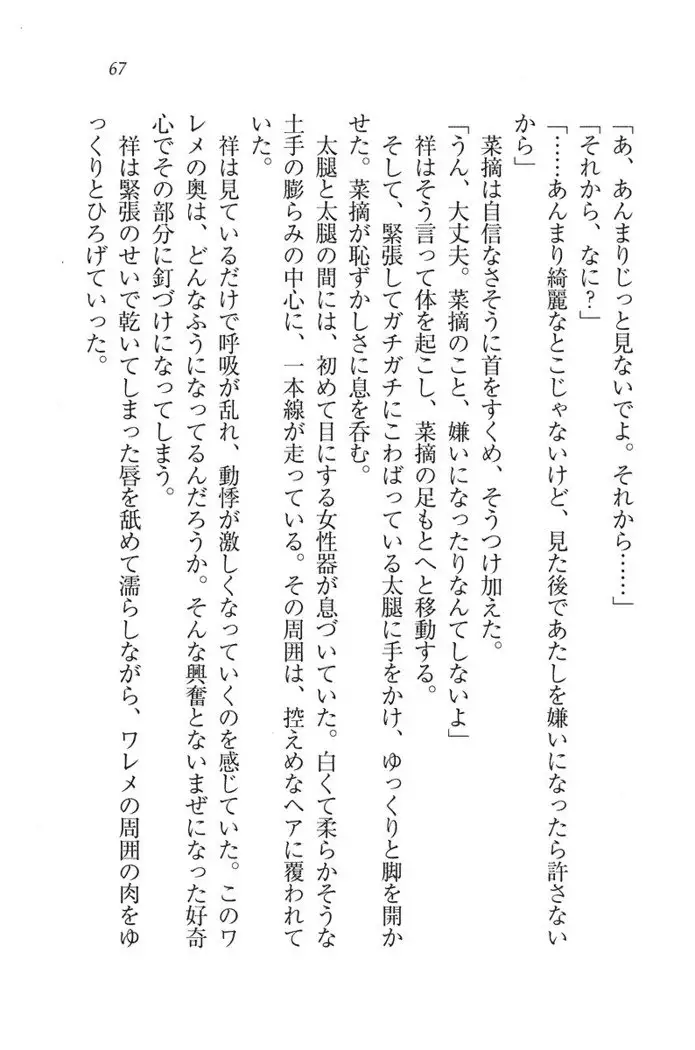 67
「あ、あんまりじっと見ないでよ。それから……」
「それから、なに？」
「……あんまり綺麗なとこじゃないけど、見た後であたしを嫌いになったら許さない
から」
菜摘は自信なさそうに首をすくめ、そうつけ加えた。
「うん、大丈夫。菜摘のこと、嫌いになったりなんてしないよ」
祥はそう言って体を起こし、菜摘の足もとへと移動する。
そして、緊張してガチガチにこわばっている太腿に手をかけ、ゆっくりと脚を開か
せた。菜摘が恥ずかしさに息を呑む。
太腿と太腿の間には、初めて目にする女性器が息づいていた。白くて柔らかそうな
土手の膨らみの中心に、一本線が走っている。その周囲は、控えめなヘアに覆われて
いた。
祥は見ているだけで呼吸が乱れ、動悸が激しくなっていくのを感じていた。このワ
レメの奥は、どんなふうになってるんだろうか。そんな興奮とないまぜになった好奇
心でその部分に釘づけになってしまう。
祥は緊張のせいで乾いてしまった唇を舐めて濡らしながら、ワレメの周囲の肉をゆ
っくりとひろげていった。